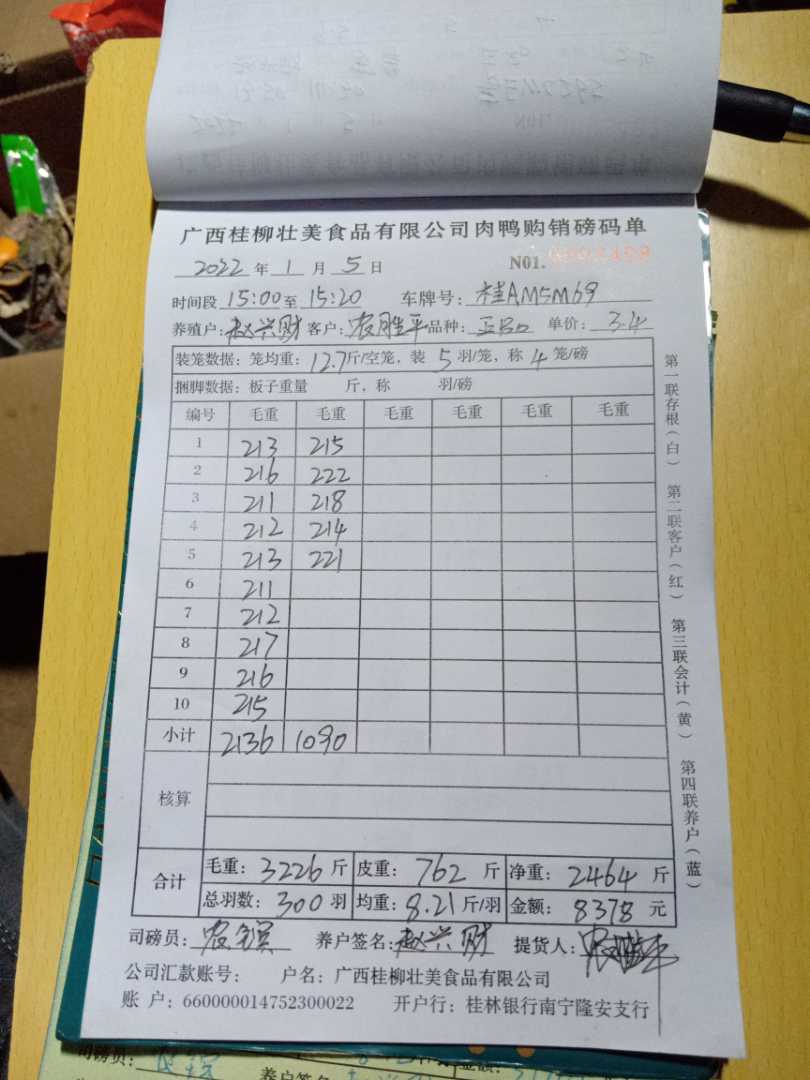 广西桂柳壮美食品有限公司肉鸭购销磅码单
2022 年 1 月 5 日 N01.
时间段 15:00 至 15:20 车牌号: 桂AM5M69
养殖户: 赵兴财 客户: 农胜平 品种: 单价: 3.4
装笼数据: 笼均重: 12.7 斤/空笼, 装 5 羽/笼, 称 4 笼/磅
捆脚数据: 板子重量 斤, 称 羽/磅
编号 毛重 毛重 毛重 毛重 毛重 毛重
1 213 215
2 216 222
3 211 218
4 212 214
5 213 221
6 211
7 212
8 217
9 216
10 215
小计 2136 1090
核算
合计 毛重: 3226 斤 皮重: 762 斤 净重: 2464 斤
总羽数: 300 羽 均重: 8.21 斤/羽 金额: 8378 元
司磅员: 养户签名: 赵兴财 提货人:
公司汇款账号: 户名: 广西桂柳壮美食品有限公司
账 户: 660000014752300022 开户行: 桂林银行南宁隆安支行
第一联存根(白) 第二联客户(红) 第三联会计(黄) 第四联养户(蓝)
司磅员: